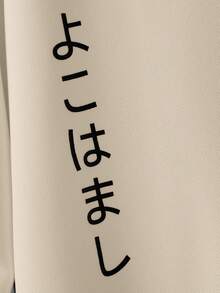 よこはまし